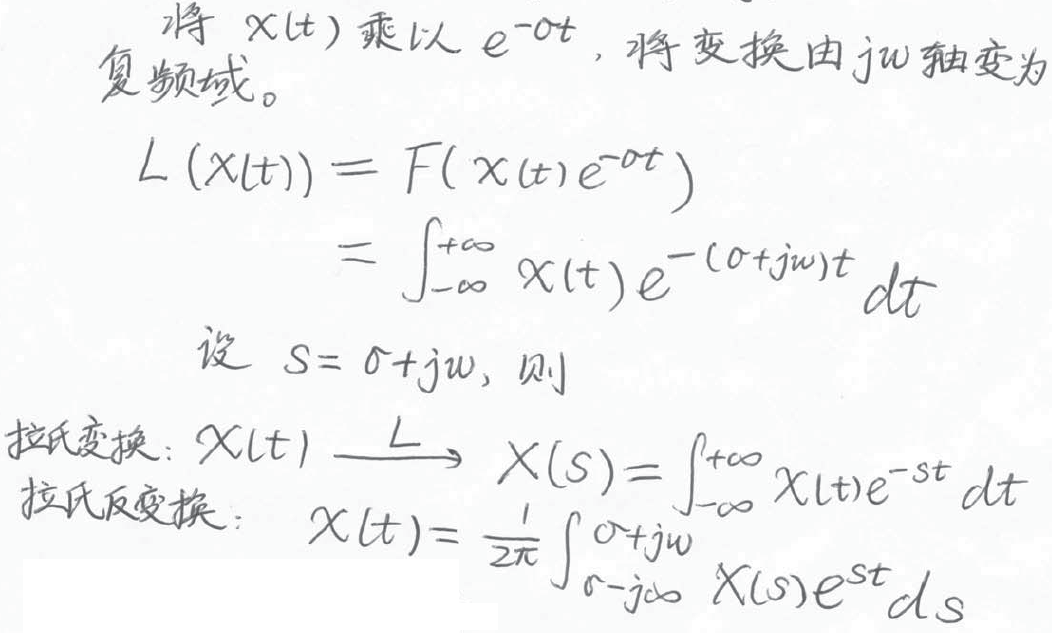 将 x(t) 乘以 e^{-σt}, 将变换由jω轴变为
复频域。
L(x(t)) = F(x(t)e^{-σt})
= ∫_{-∞}^{+∞} x(t)e^{-(σ+jω)t} dt
设 s=σ+jω, 则
拉氏变换: x(t) —L→ X(s)=∫_{-∞}^{+∞} x(t)e^{-st} dt
拉氏反变换: x(t)= \frac{1}{2π} ∫_{σ-j∞}^{σ+jω} X(s)e^{st}ds